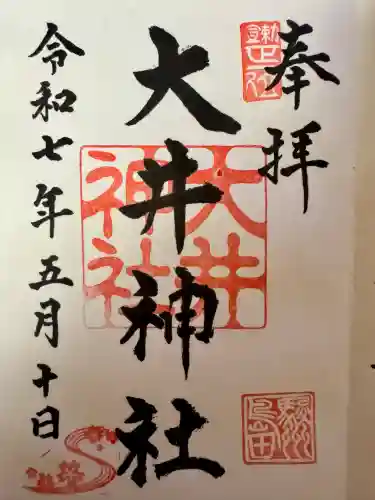 奉拝
大井神社
令和七年五月十日
大井
神社